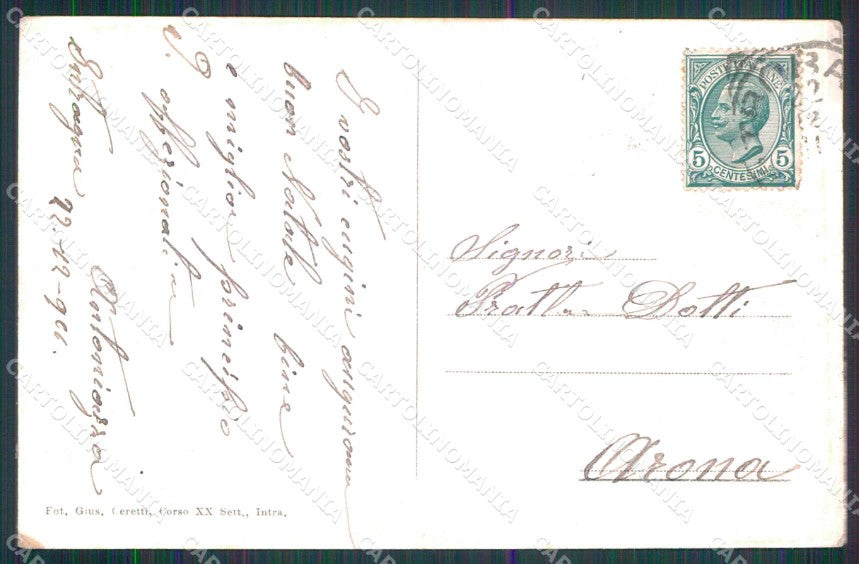 I vostri cugini augurano
buon Natale bene
e miglior principio
affezionatiss
Antonia
Intragna 22-12-911.
POSTE ITALIANE
5 CENTESIMI 5
Signori
Fratt Dotti
Arona
Fot. Gius. Ceretti, Corso XX Sett., Intra.
CARTOLINOMANIA